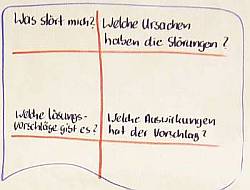 Was stört mich?
Welche Ursachen
haben die Störungen?
Welche Lösungs-
vorschläge gibt es?
Welche Auswirkungen
hat der Vorschlag?